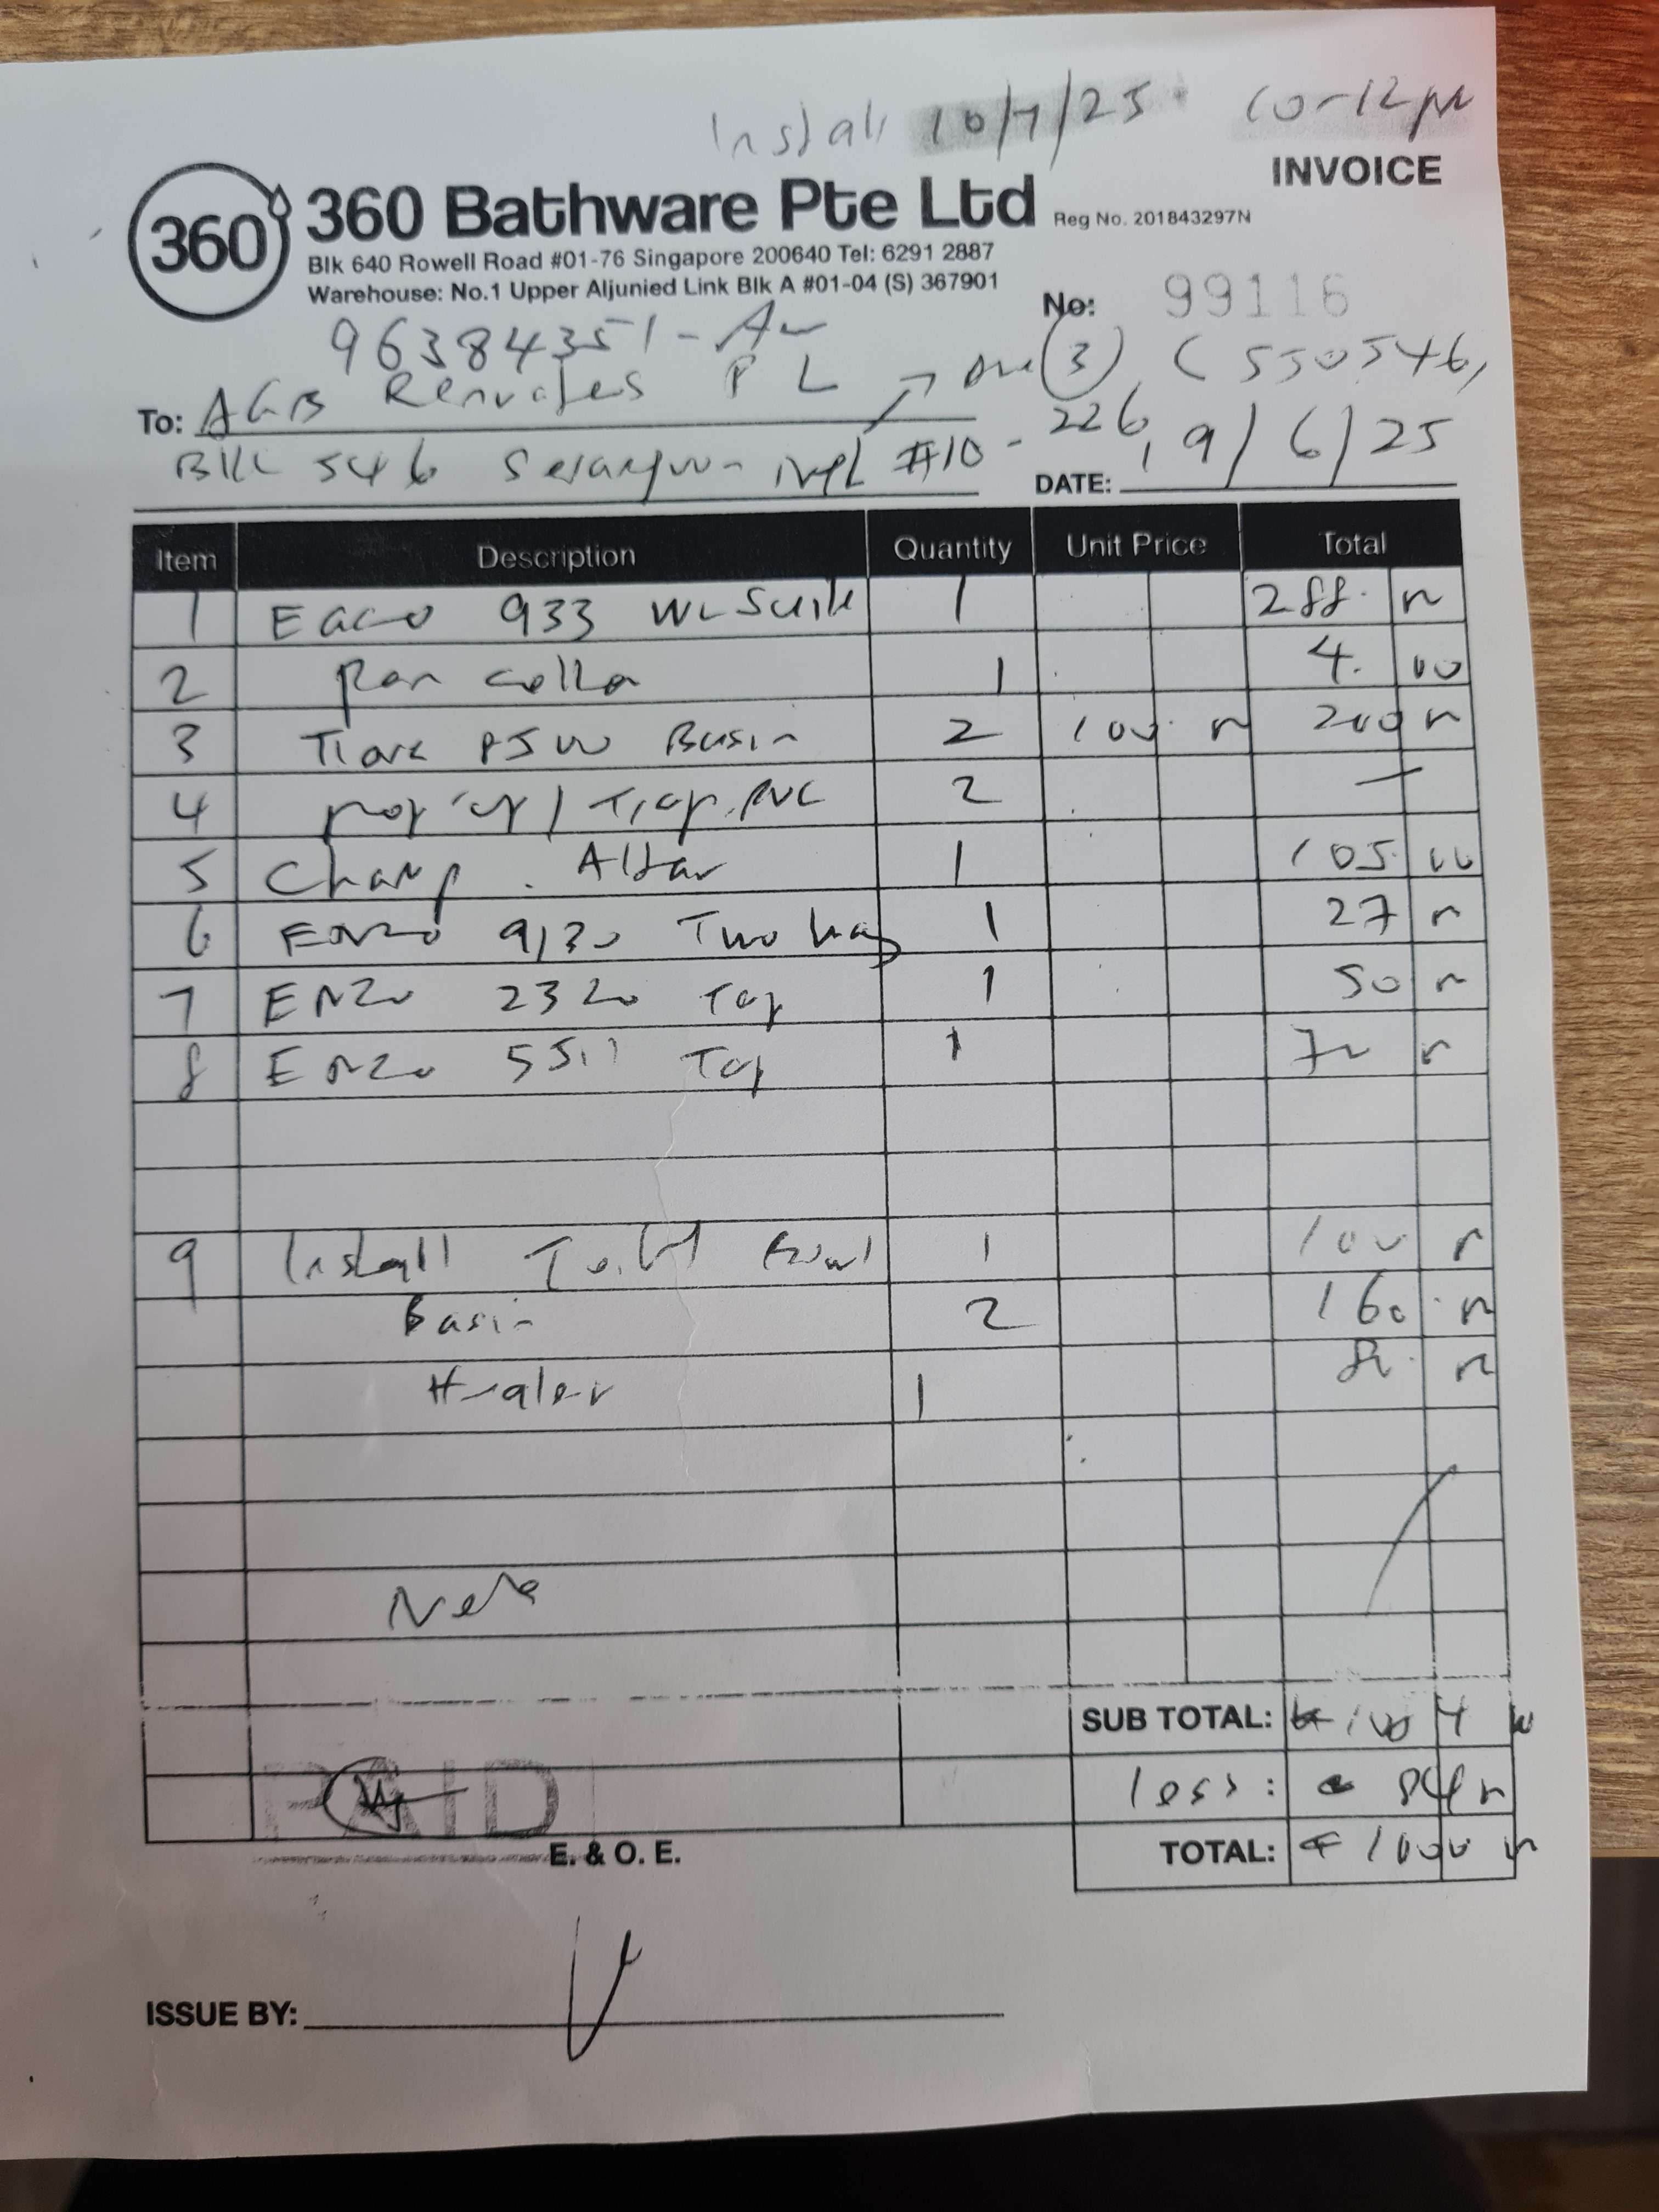 Install 10/7/25 10-12pm
INVOICE
360 360 Bathware Pte Ltd Reg No. 201843297N
Blk 640 Rowell Road #01-76 Singapore 200640 Tel: 6291 2887
Warehouse: No.1 Upper Aljunied Link Blk A #01-04 (S) 367901
No: 99116
96384351 -
To: AGB P L (3) (550546)
Blk 546 Serangoon #10-226
DATE: 9/6/25
Item Description Quantity Unit Price Total
1 933 WC Suite 1 288.
2 Pan colla 1 4. 00
3 Basin 2 100 200
4 pop up / Trap PVC 2 —
5 Champ. Altar 1 105. 00
6 ENZO 9130 Two way 1 27
7 ENZO 2320 Tap 1 50
8 ENZO Tap 1
9 Install Toilet Bowl 1 100
Basin 2 160.
1
SUB TOTAL:
less: 84
TOTAL: 1000
PAID
E. & O. E.
ISSUE BY: